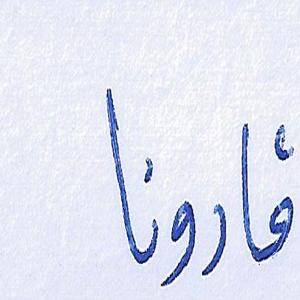 قادونا